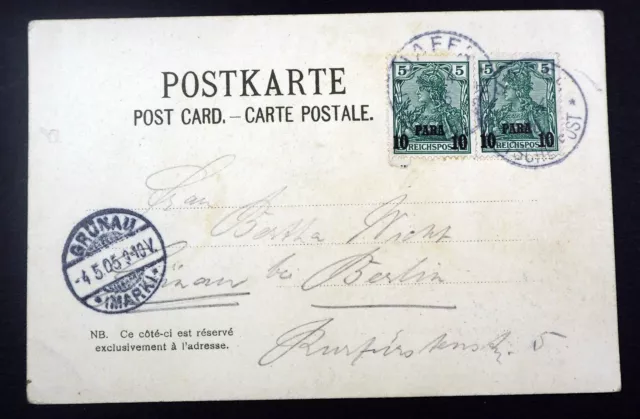 POSTKARTE
POST CARD. – CARTE POSTALE.
JAFFA
5 5
10 PARA 10
REICHSPOST
5 5
10 PARA 10
REICHSPOST
* POST *
GRÜNAU
-4.5.05.9-10V.
*(MARK)*
Frau
Bertha Nicht
Grünau bei Berlin
Kurfürstenstr. 5
NB. Ce côté-ci est réservé
exclusivement à l'adresse.